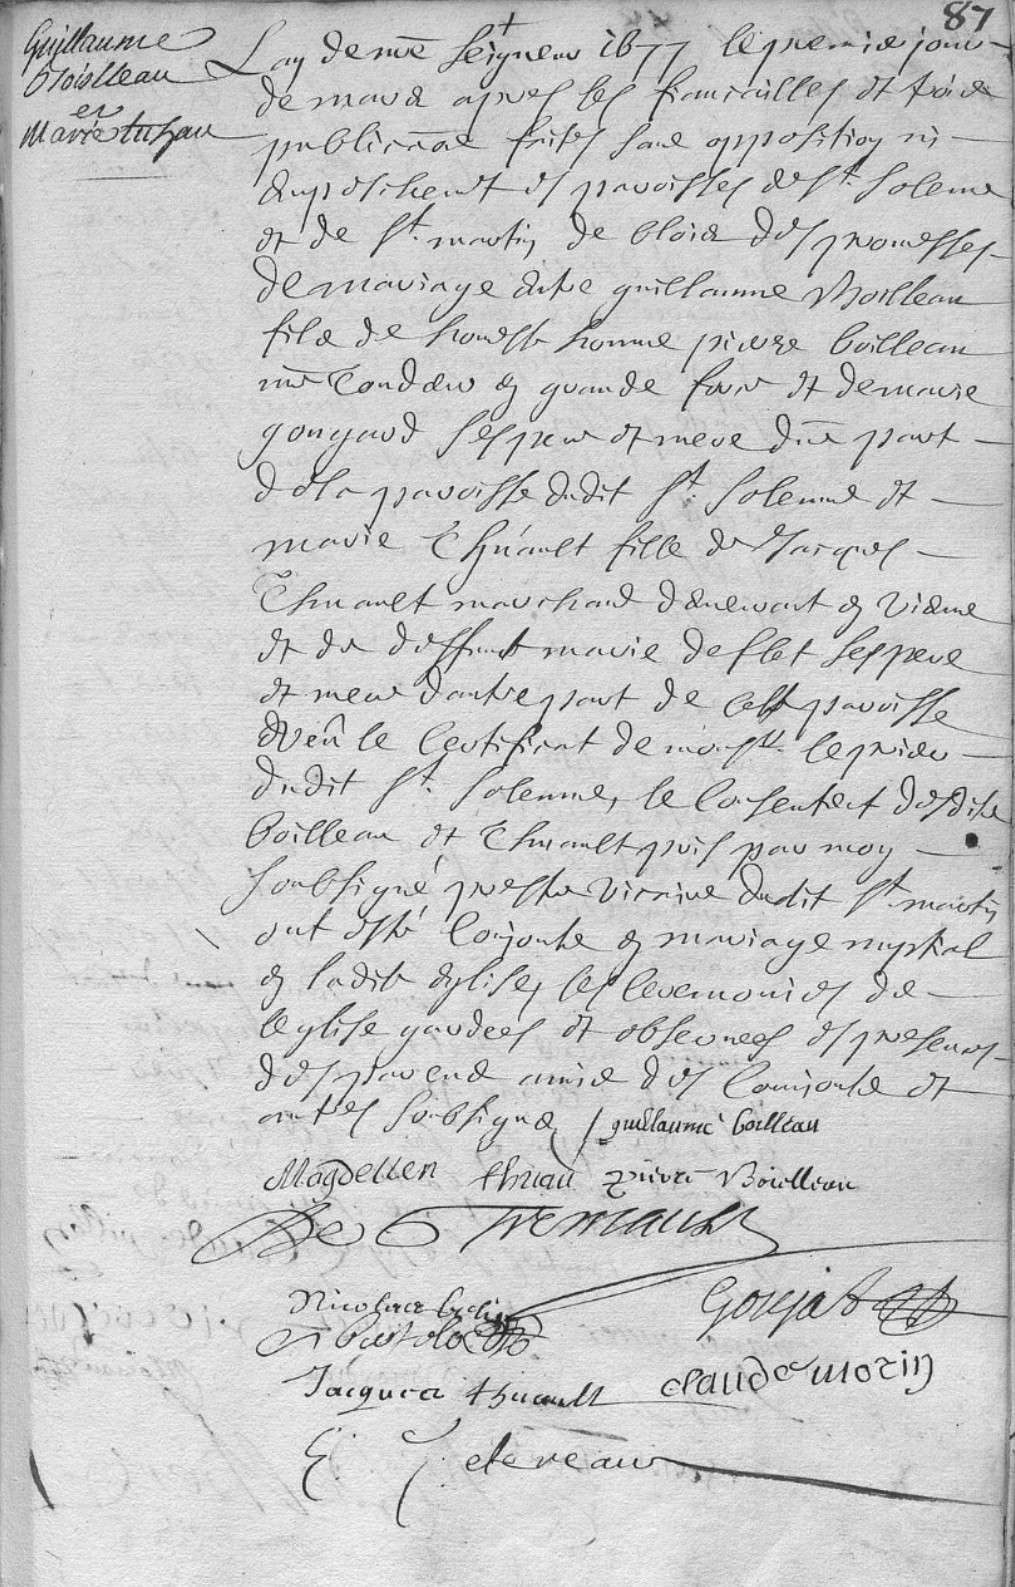 87
Guillaume
Boisleau
et
Marie tuhau
Lan de nre Seigneur 1677 le premier jour
de mars apres les fiancailles et trois
publicãons faites sans opposition ni
empeschement es paroisses de St. Solenne
et de St. martin de blois des promesses
de mariage entre guillaume Boilleau
fils de honeste homme pierre boilleau
me en grande et de marie
gougard ses pere et mere dune part
de la paroisse dudit St. Solenne et
marie Thuault fille de Jacques
Thuault marchand demeurant en vienne
et de deffunte marie deflet ses pere
et mere dautre part de cette paroisse
veu le certificat de monsr. le prieur
dudit St. Solenne, le consentement desdits
boilleau et Thuault puis par moy
soubsigné prestre vicaire dudit St. martin
ont esté conjoints en mariage
en ladite eglise, les ceremonies de
leglise gardees et observees es presences
des parens amis des conjoints et
autres soubsignes / guillaume boilleau
Magdellen thuau pierre Boielleau
De Tremault
Nicolas
Goujat
Bartola
Jacques thuault claude morin
E. J. clereau